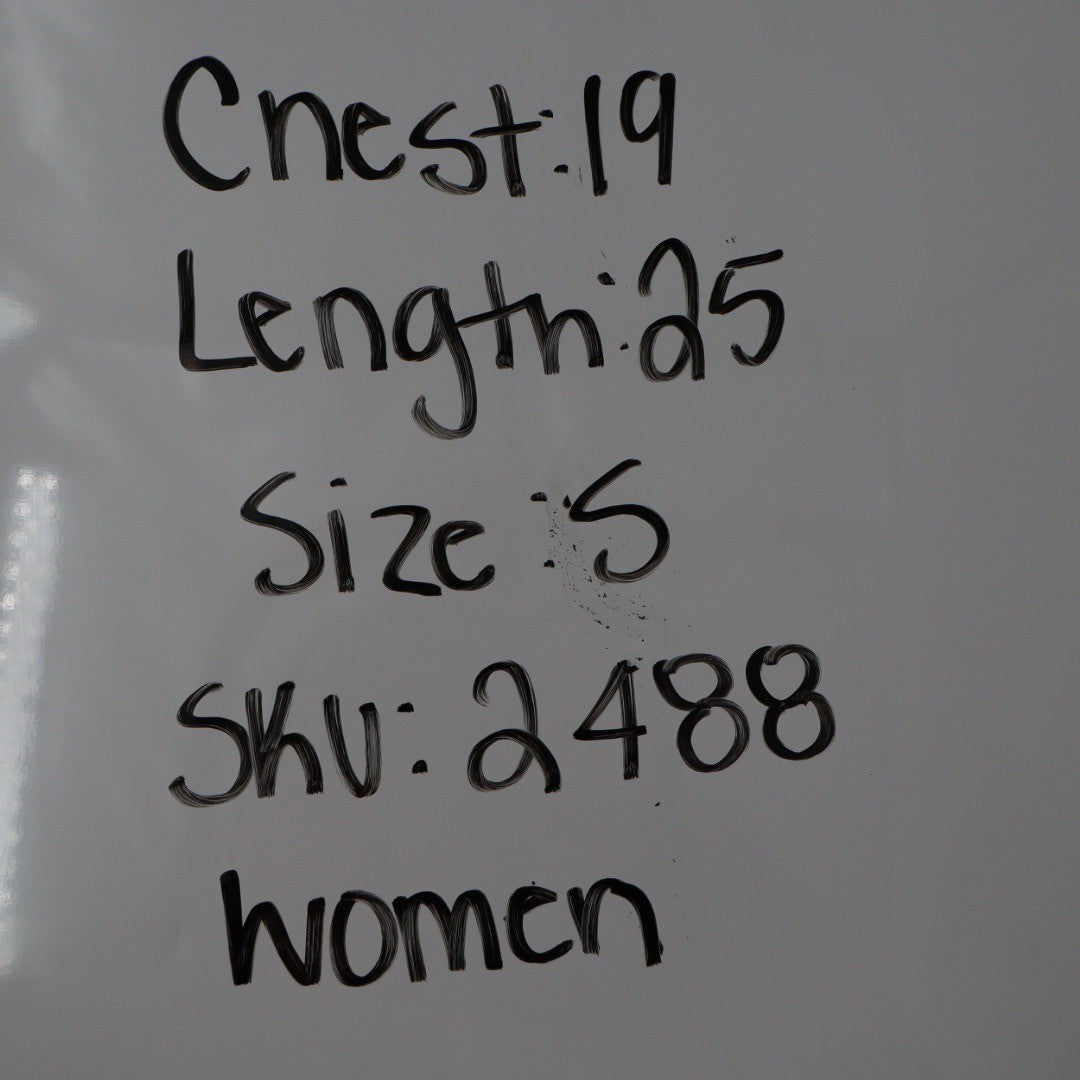 Chest:19
Length:25
Size :S
SKU: 2488
Women